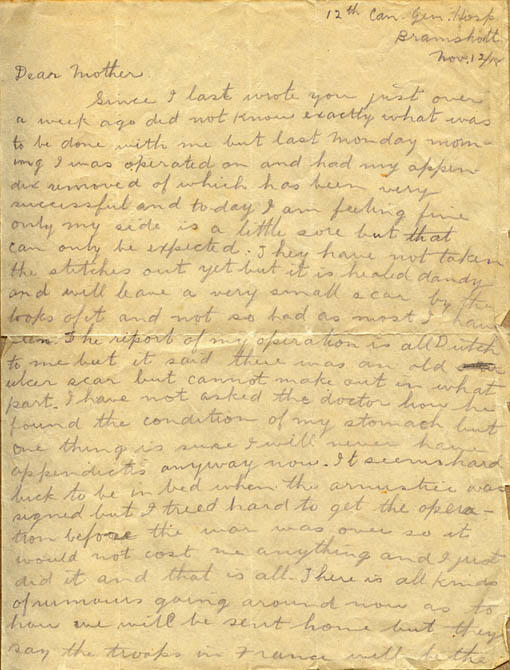 12th Can. Gen. Hosp
Bramshott
Nov. 12/18
Dear Mother.
Since I last wrote you just over
a week ago did not know exactly what was
to be done with me but last Monday morn-
ing I was operated on and had my appen
dix removed of which has been very
successful and today I am feeling fine
only my side is a little sore but that
can only be expected. They have not taken
the stitches out yet but it is healed dandy
and will leave a very small scar by the
looks of it and not so bad as most I have
seen. The report of my operation is all Dutch
to me but it said there was an old
ulcer scar but cannot make out in what
part. I have not asked the doctor how he
found the condition of my stomach but
one thing is sure I will never have
appendicts anyway now. It seems hard
luck to be in bed when the armustice was
signed but I tried hard to get the opera-
tion before the war was over so it
would not cost me anything and I just
did it and that is all. There is all kinds
of rumours going around now as to
how we will be sent home but they
say the troops in France will be the